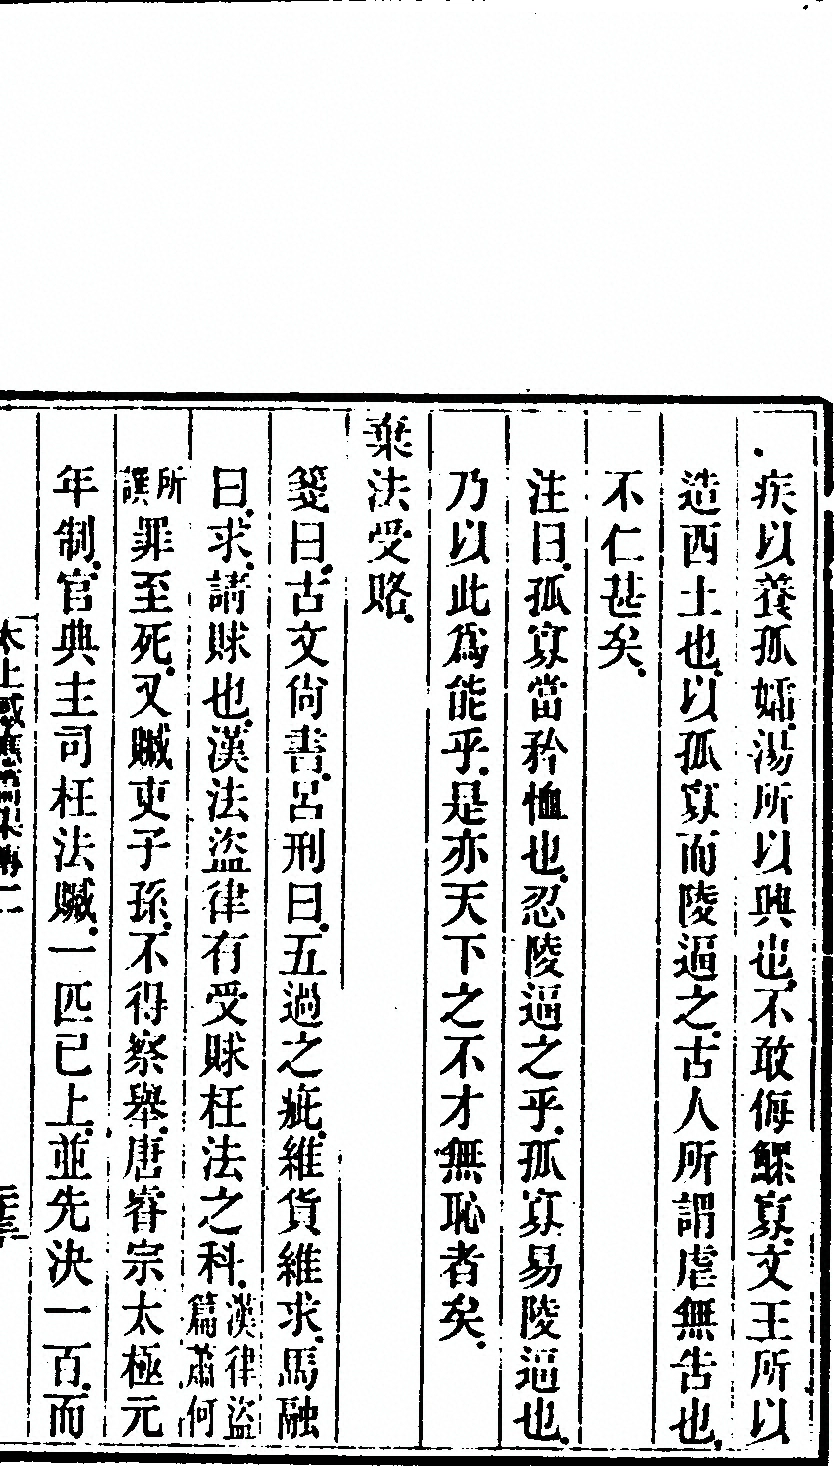 疾以養孤孀湯所以興也不敢侮鰥寡文王所以
造西土也以孤寡而陵逼之古人所謂虐無告也
不仁甚矣
注曰孤寡當矜恤也忍陵逼之乎孤寡易陵逼也
乃以此爲能乎是亦天下之不才無恥者矣
棄法受賂
箋曰古文尙書呂刑曰五過之疵維貨維求馬融
曰求請賕也漢法盜律有受賕枉法之科漢律盜篇蕭何
所譔罪至死又贓吏子孫不得察舉唐睿宗太極元
年制官典主司枉法贓一匹已上並先決一百而
太上感應篇集傳二